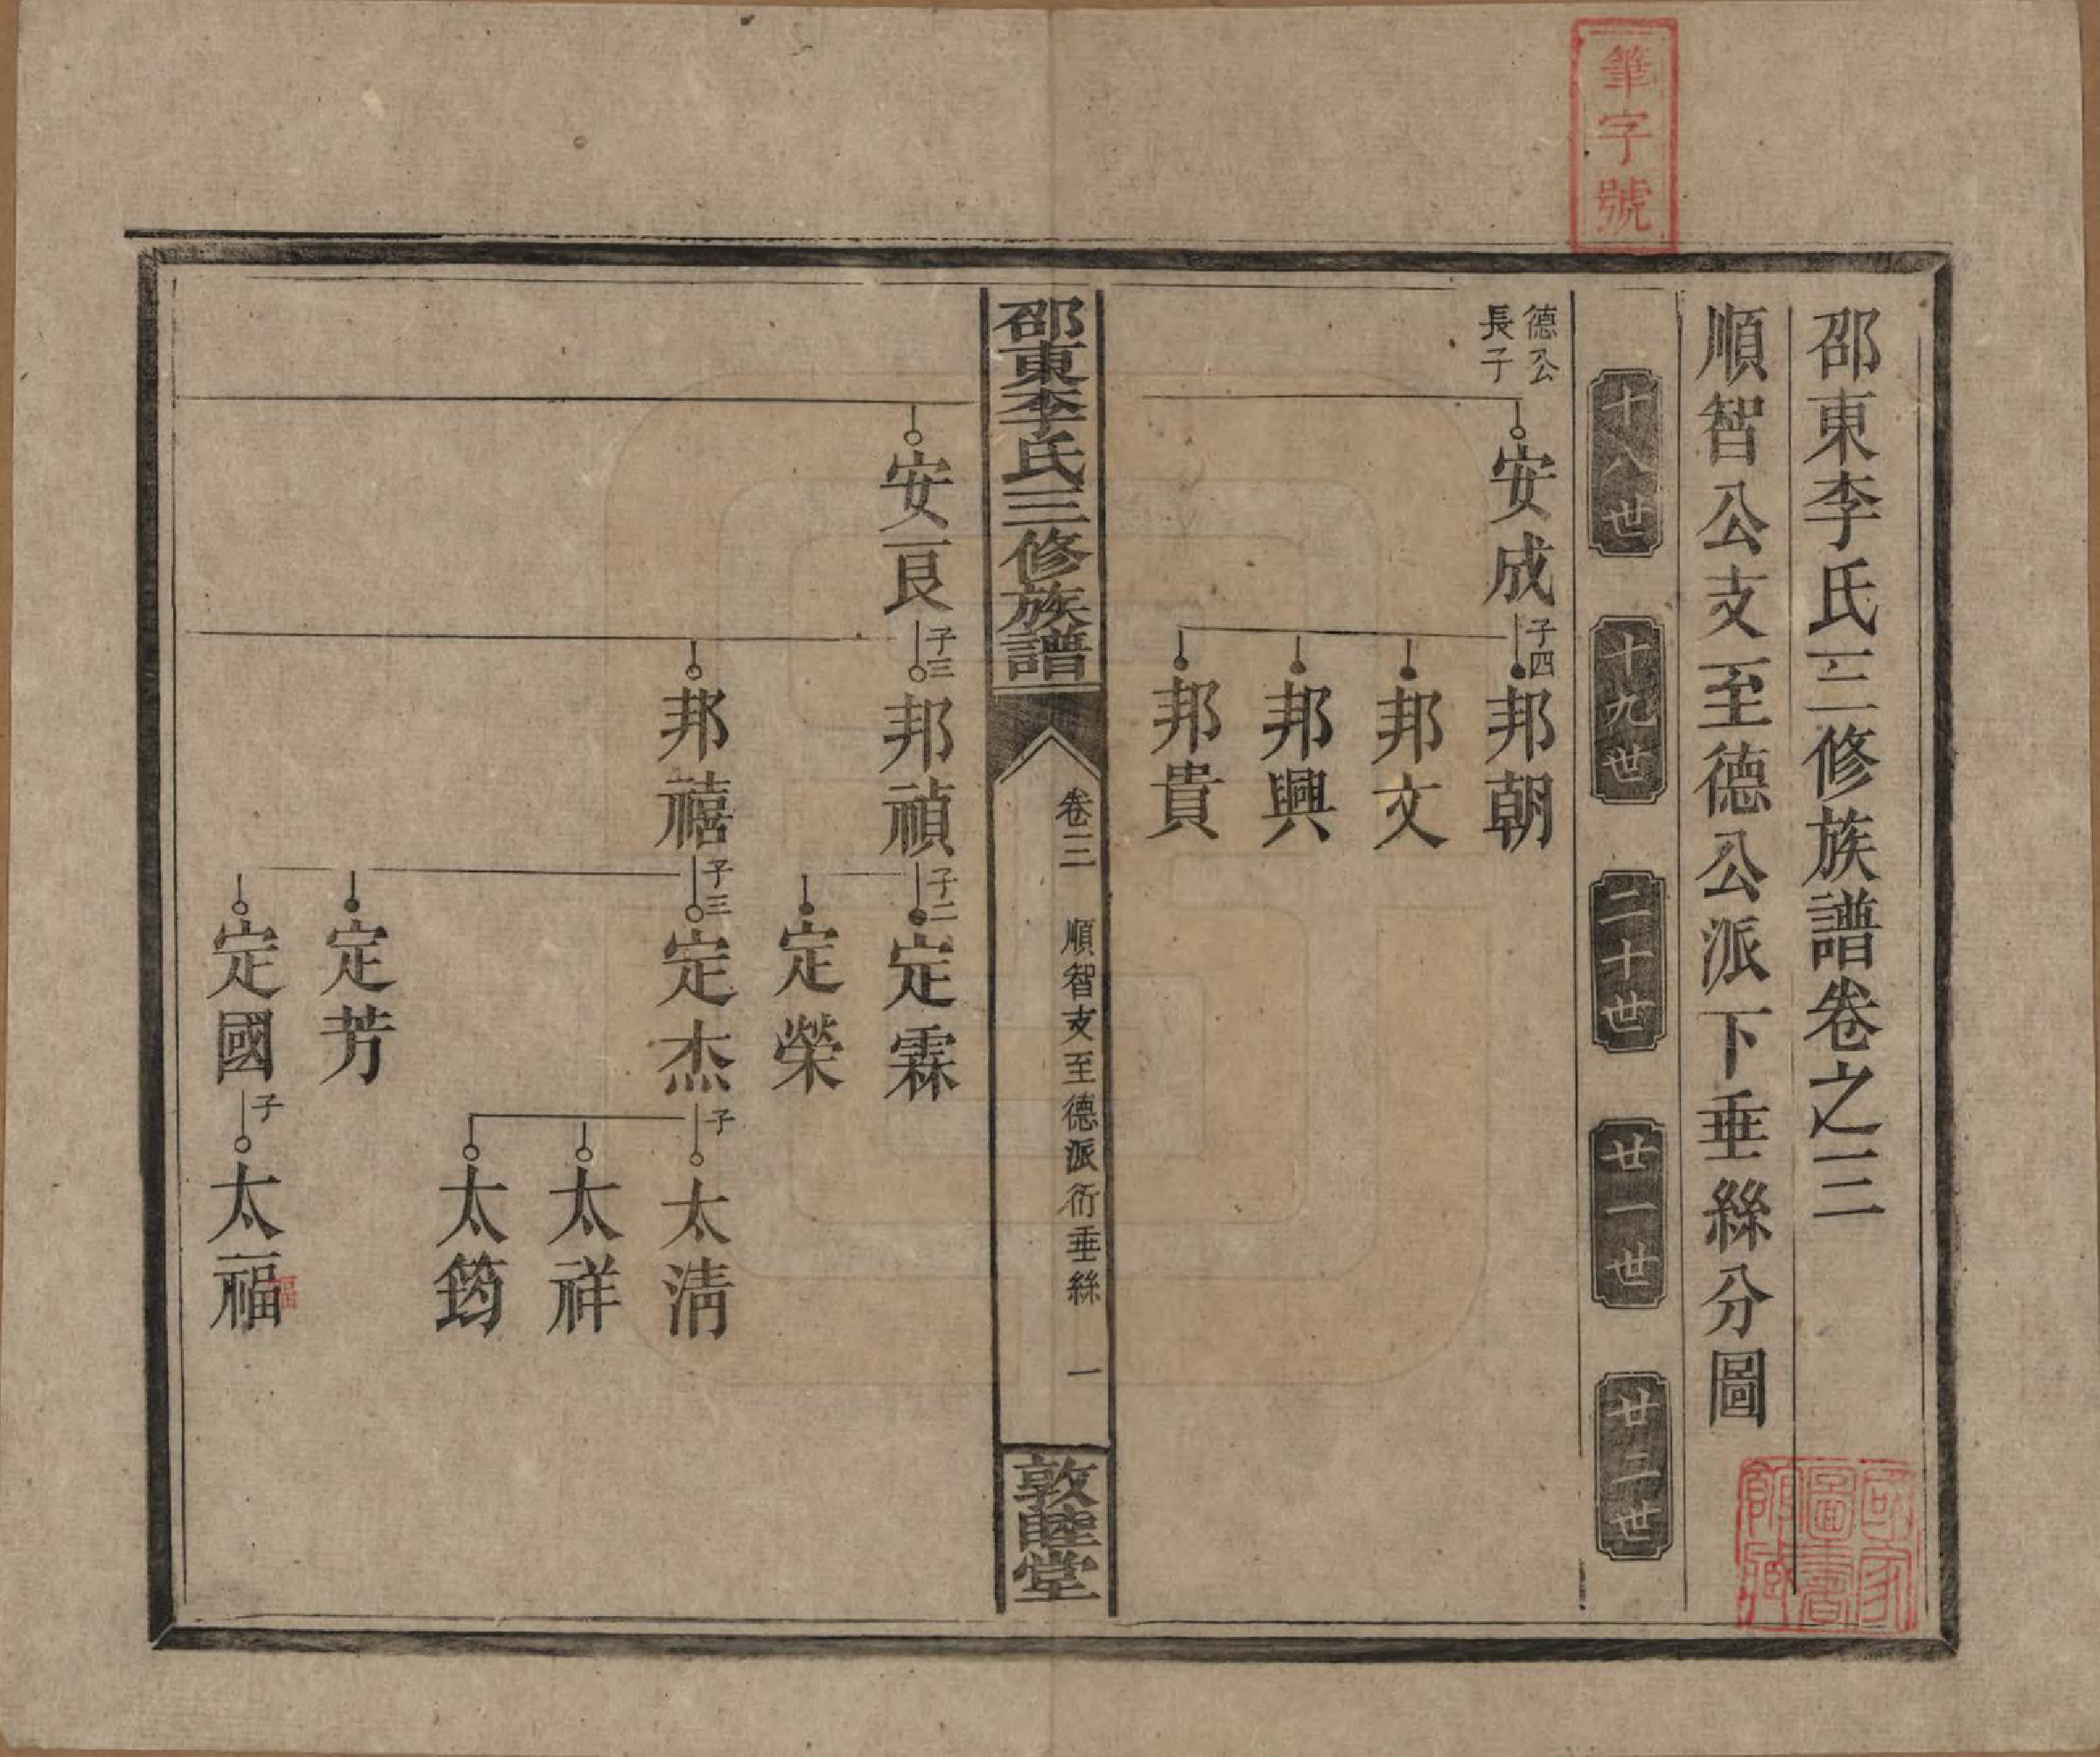 筆字號
邵東李氏三修族譜卷之三
順智公支至德公派下垂絲分圖
十八世
十九世
二十世
廿一世
廿二世
德公
長子
安成
子四
邦朝
邦文
邦興
邦貴
邵東李氏三修族譜
卷三
順智支至德派衍垂絲
一
敦睦堂
安良
子三
邦禎
子二
定霖
定榮
邦禧
子三
定杰
子
太清
太祥
太筠
定芳
定國
子
太福
福
國家
圖書
館藏